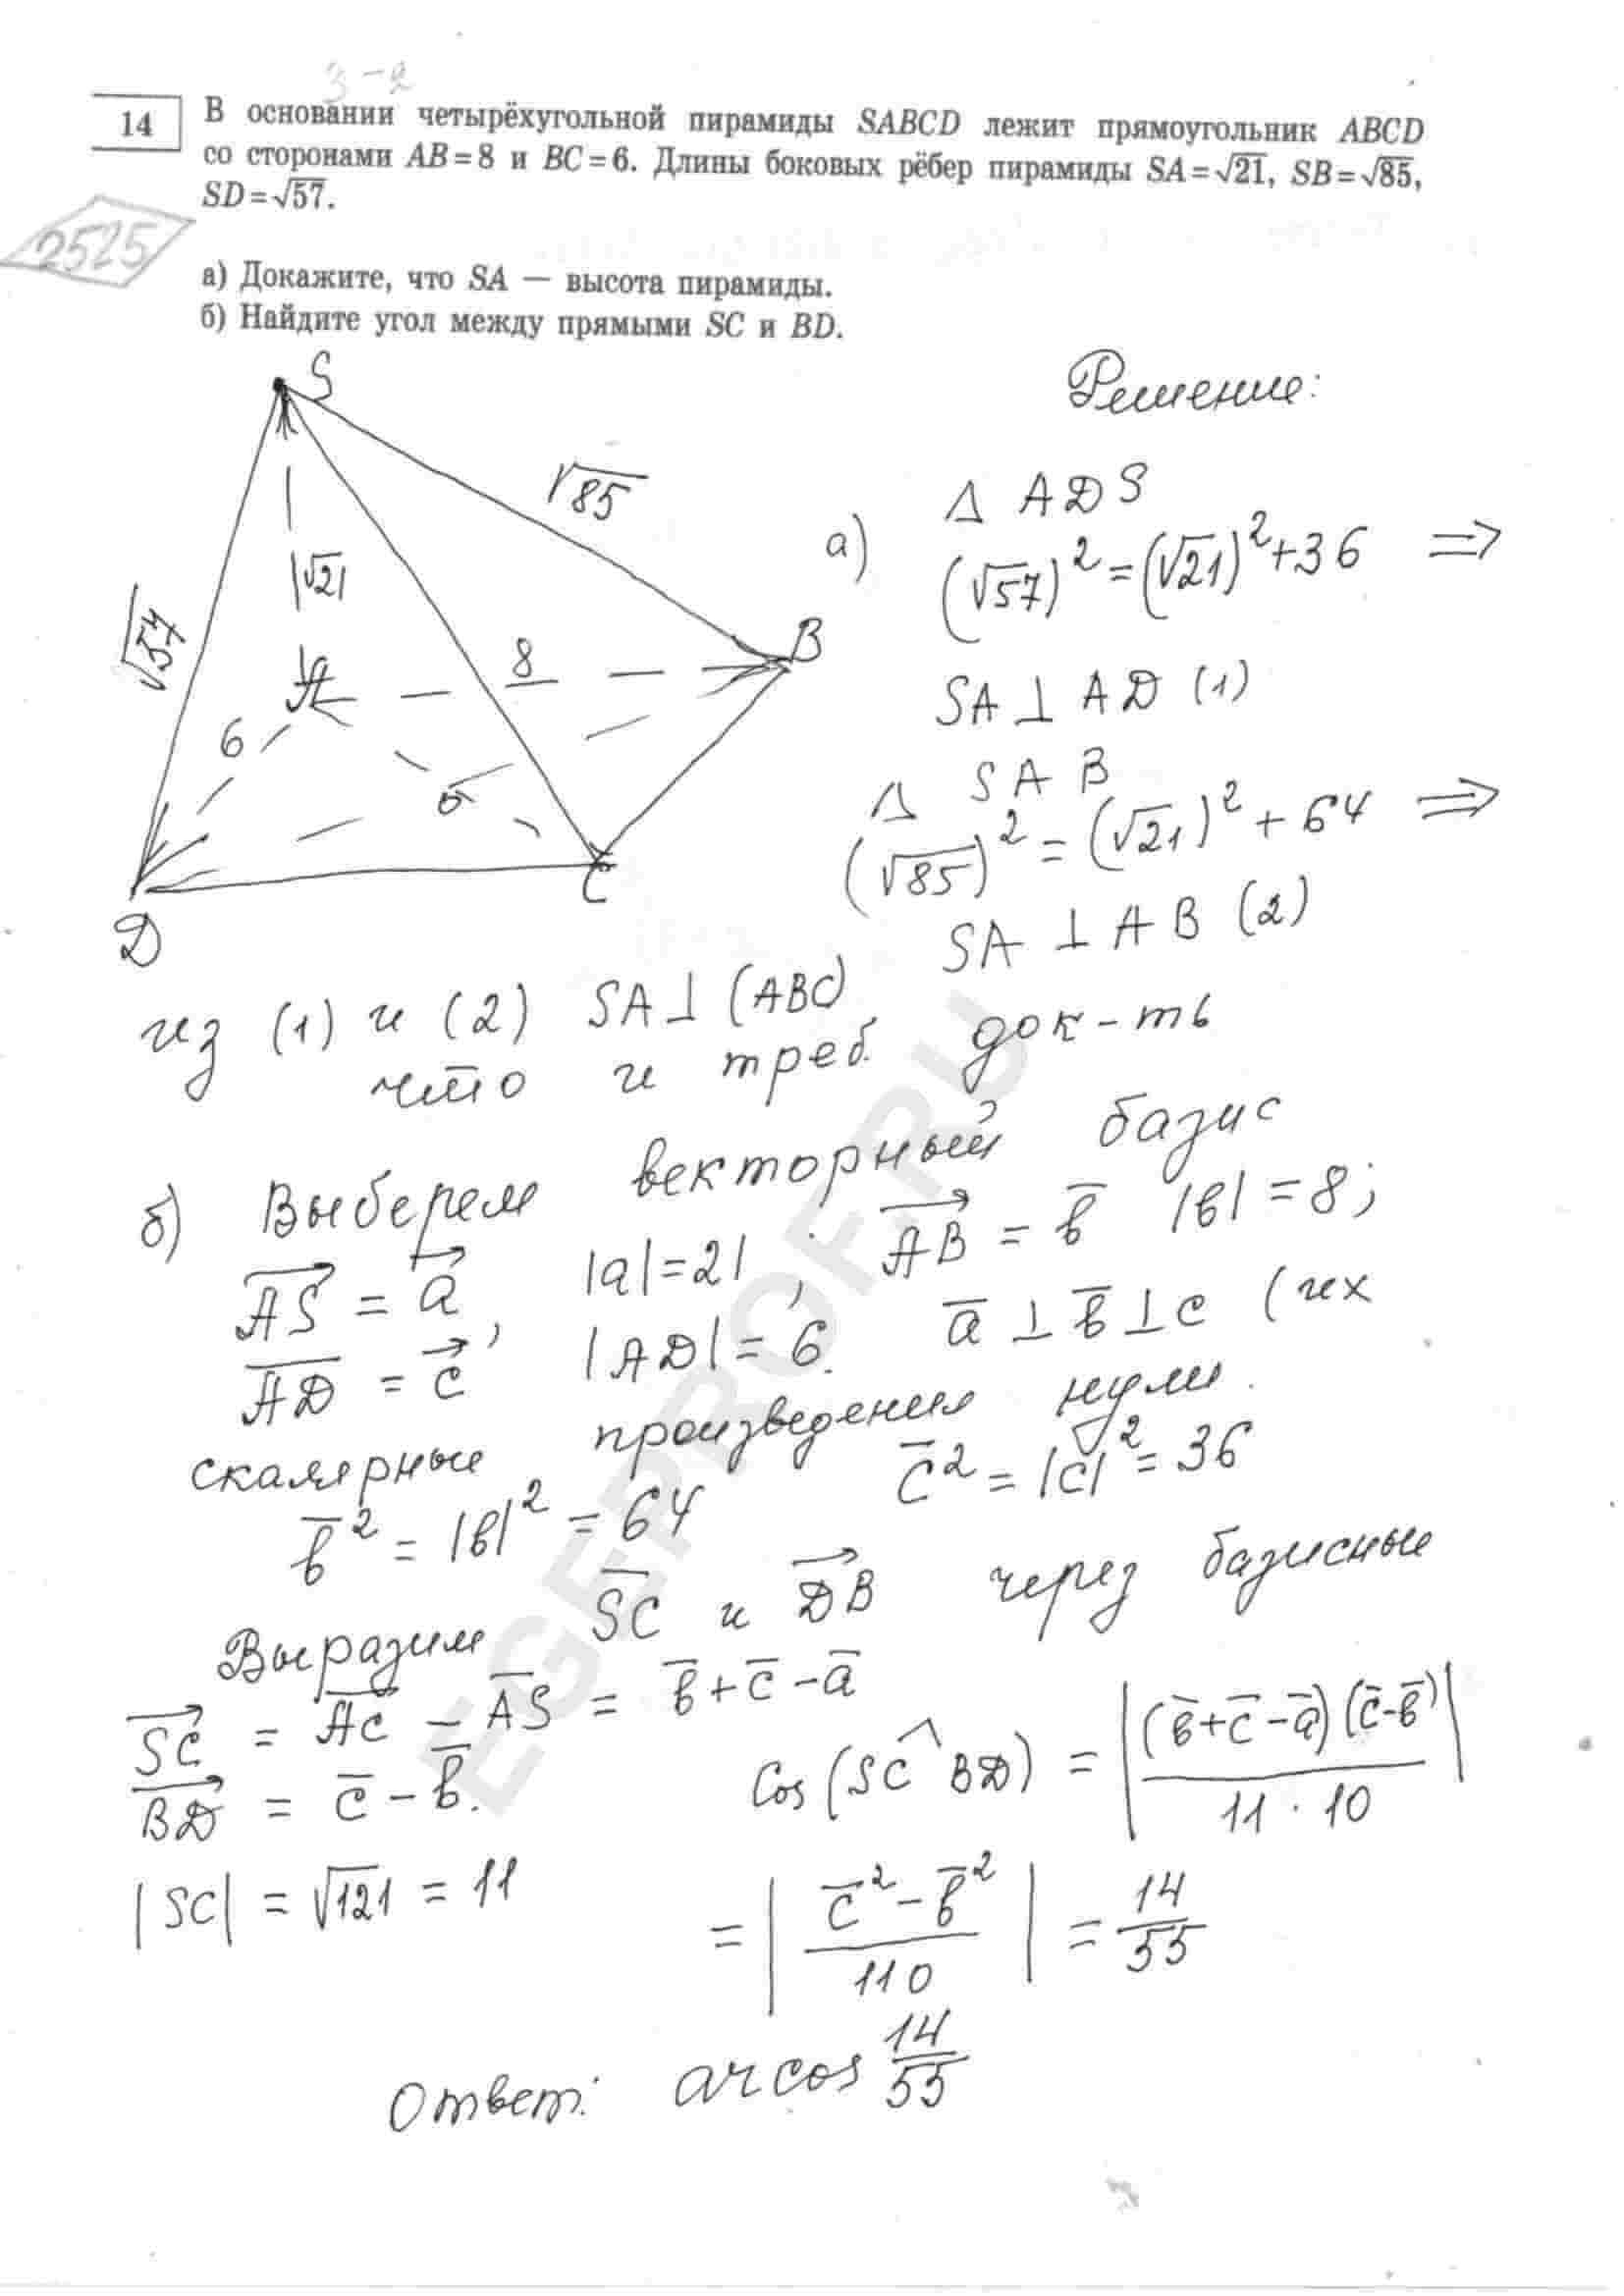 3-а
14
В основании четырёхугольной пирамиды SABCD лежит прямоугольник ABCD
со сторонами AB=8 и BC=6. Длины боковых рёбер пирамиды SA=√21, SB=√85,
SD=√57.
2525
а) Докажите, что SA — высота пирамиды.
б) Найдите угол между прямыми SC и BD.
S
Решение:
√85
√21
√57
8
B
A
6
D
C
а) Δ ADS
(√57)² = (√21)² + 36 ⇒
SA ⊥ AD (1)
Δ SAB
(√85)² = (√21)² + 64 ⇒
SA ⊥ AB (2)
из (1) и (2) SA ⊥ (ABC)
что и треб. док-ть
б) Выберем векторный базис
AS = a, |a| = 21, AB = b |b| = 8;
AD = c, |AD| = 6. a ⊥ b ⊥ c (их
скалярные произведения нули.
b² = |b|² = 64 c² = |c|² = 36
Выразим SC и DB через базисные
SC = AC - AS = b + c - a
BD = c - b.
cos(SC^BD) = |(b+c-a)(c-b) / 11·10|
|SC| = √121 = 11
= |c² - b² / 110| = 14/55
Ответ: arcos 14/55
EGEPROF.RU